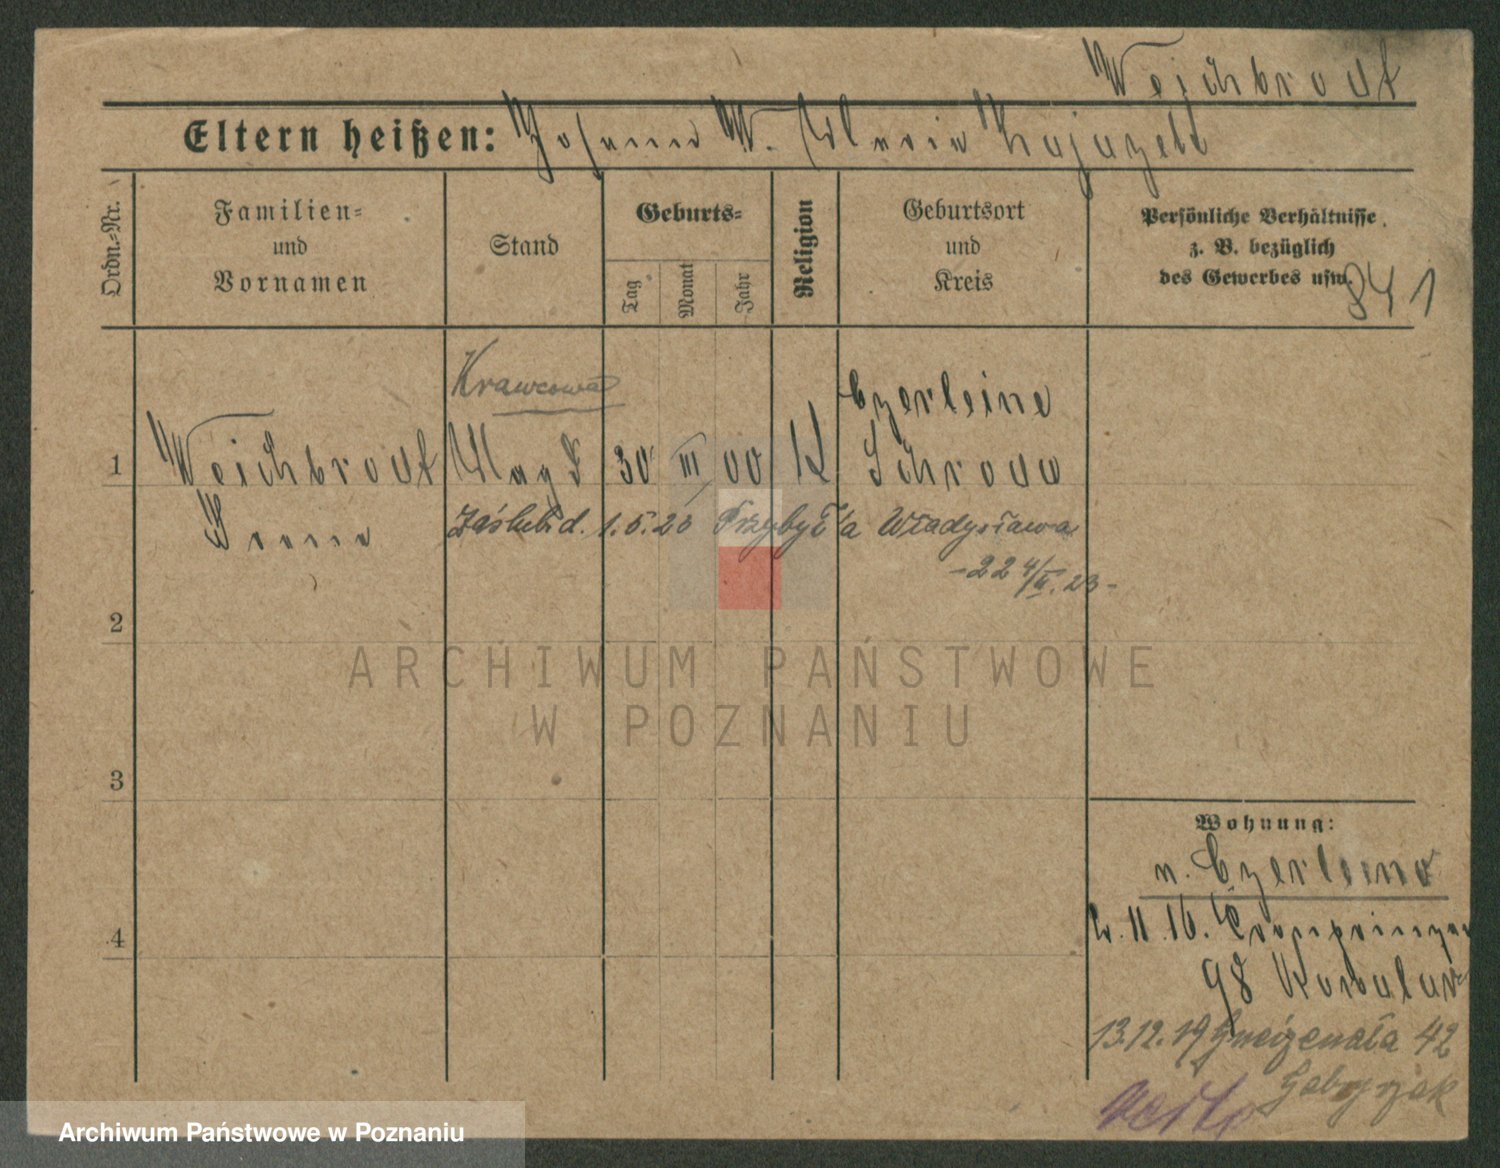 Weichbrodt
Eltern heißen: Johann W. Marie Kujazek
Ordn.-Nr.
Familien-
und
Vornamen
Stand
Geburts-
Tag
Monat
Jahr
Religion
Geburtsort
und
Kreis
Persönliche Verhältnisse
z. B. bezüglich
des Gewerbes usw.
841
Krawcowa
Czerleine
1 Weichbrodt Magd 30 III 00 K Schroda
Irene
Zaślub. d. 1.5.23 Przybyła Władysława
-22 4/II. 23-
2
3
4
Wohnung:
n. Czerleino
11. 16. Kronprinzen
98 Kowalar
13.12.19 Gneizenała 42
ARCHIWUM PAŃSTWOWE
W POZNANIU
Archiwum Państwowe w Poznaniu